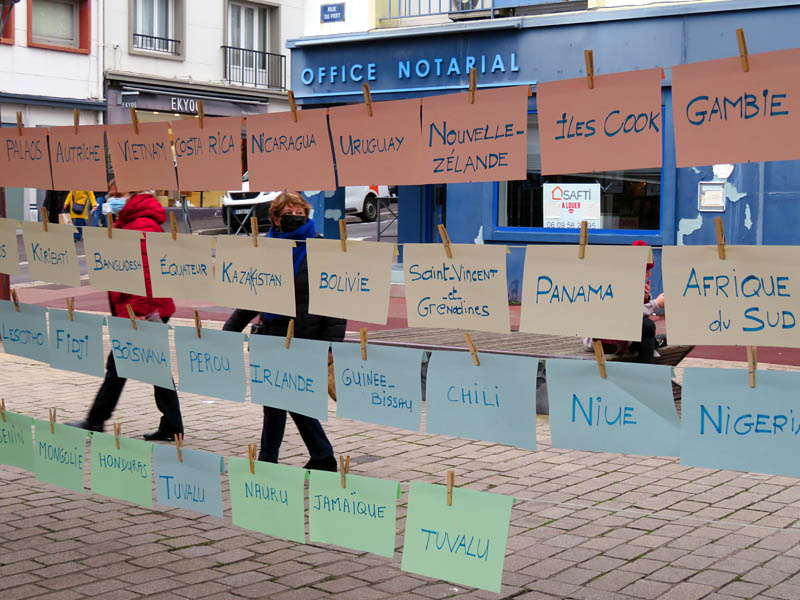 RUE
DU PORT
OFFICE NOTARIAL
EKYOG
EKYOG
PALAOS
AUTRICHE
VIETNAM
COSTA RICA
NICARAGUA
URUGUAY
NOUVELLE-
ZÉLANDE
ÎLES COOK
GAMBIE
SAFTI
A LOUER
KIRIBATI
BANGLADESH
ÉQUATEUR
KAZAKSTAN
BOLIVIE
SAINT-VINCENT
-ET-
GRENADINES
PANAMA
AFRIQUE
DU SUD
LESOTHO
FIDJI
BOTSWANA
PEROU
IRLANDE
GUINEE-
BISSAU
CHILI
NIUE
NIGERIA
BENIN
MONGOLIE
HONDURAS
TUVALU
NAURU
JAMAÏQUE
TUVALU